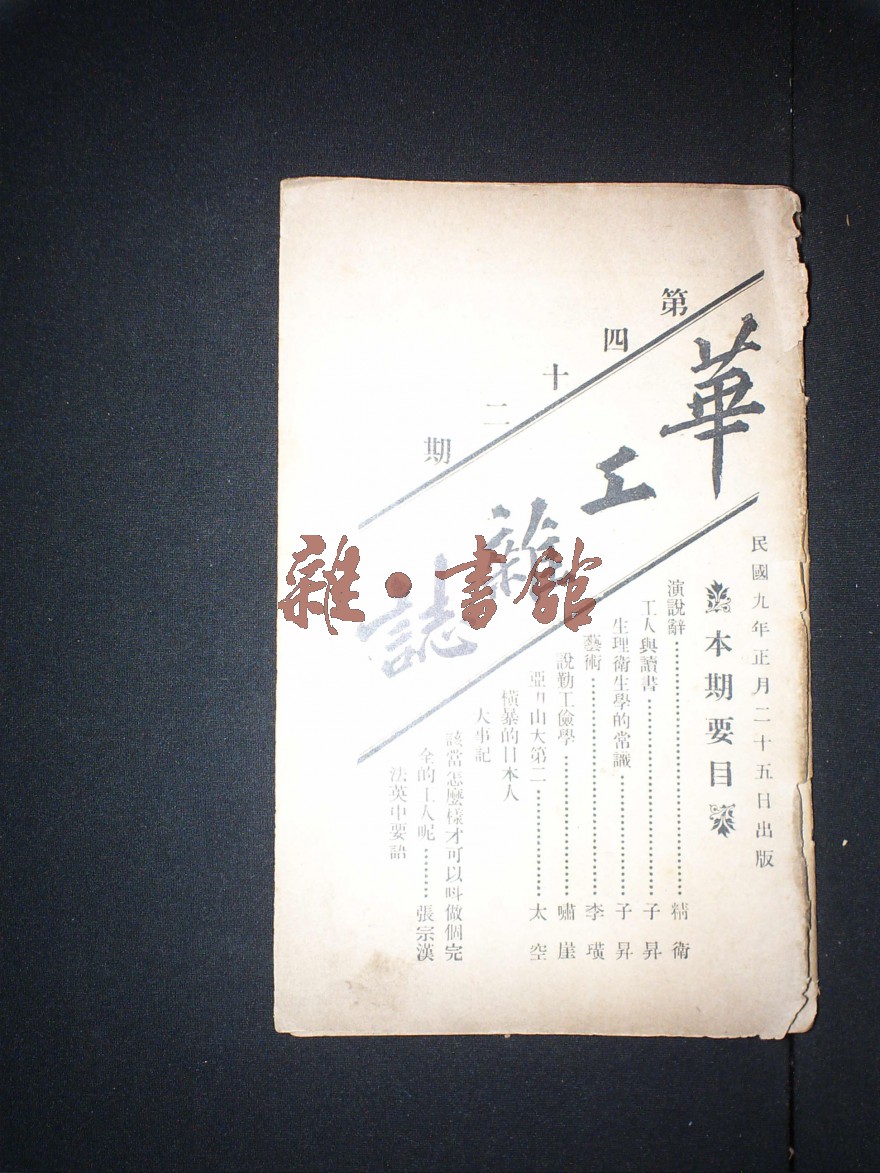 民國九年正月二十五日出版
第四十二期
華工雜誌
本期要目
演說辭 精衛
工人與讀書 子昇
生理衛生學的常識 子昇
藝術 李璜
說勤工儉學 嘯崖
山大第二 太空
橫暴的日本人
大事記
該當怎麼樣才可以叫做個完
全的工人呢 張宗漢
法英中要語
雜·書館